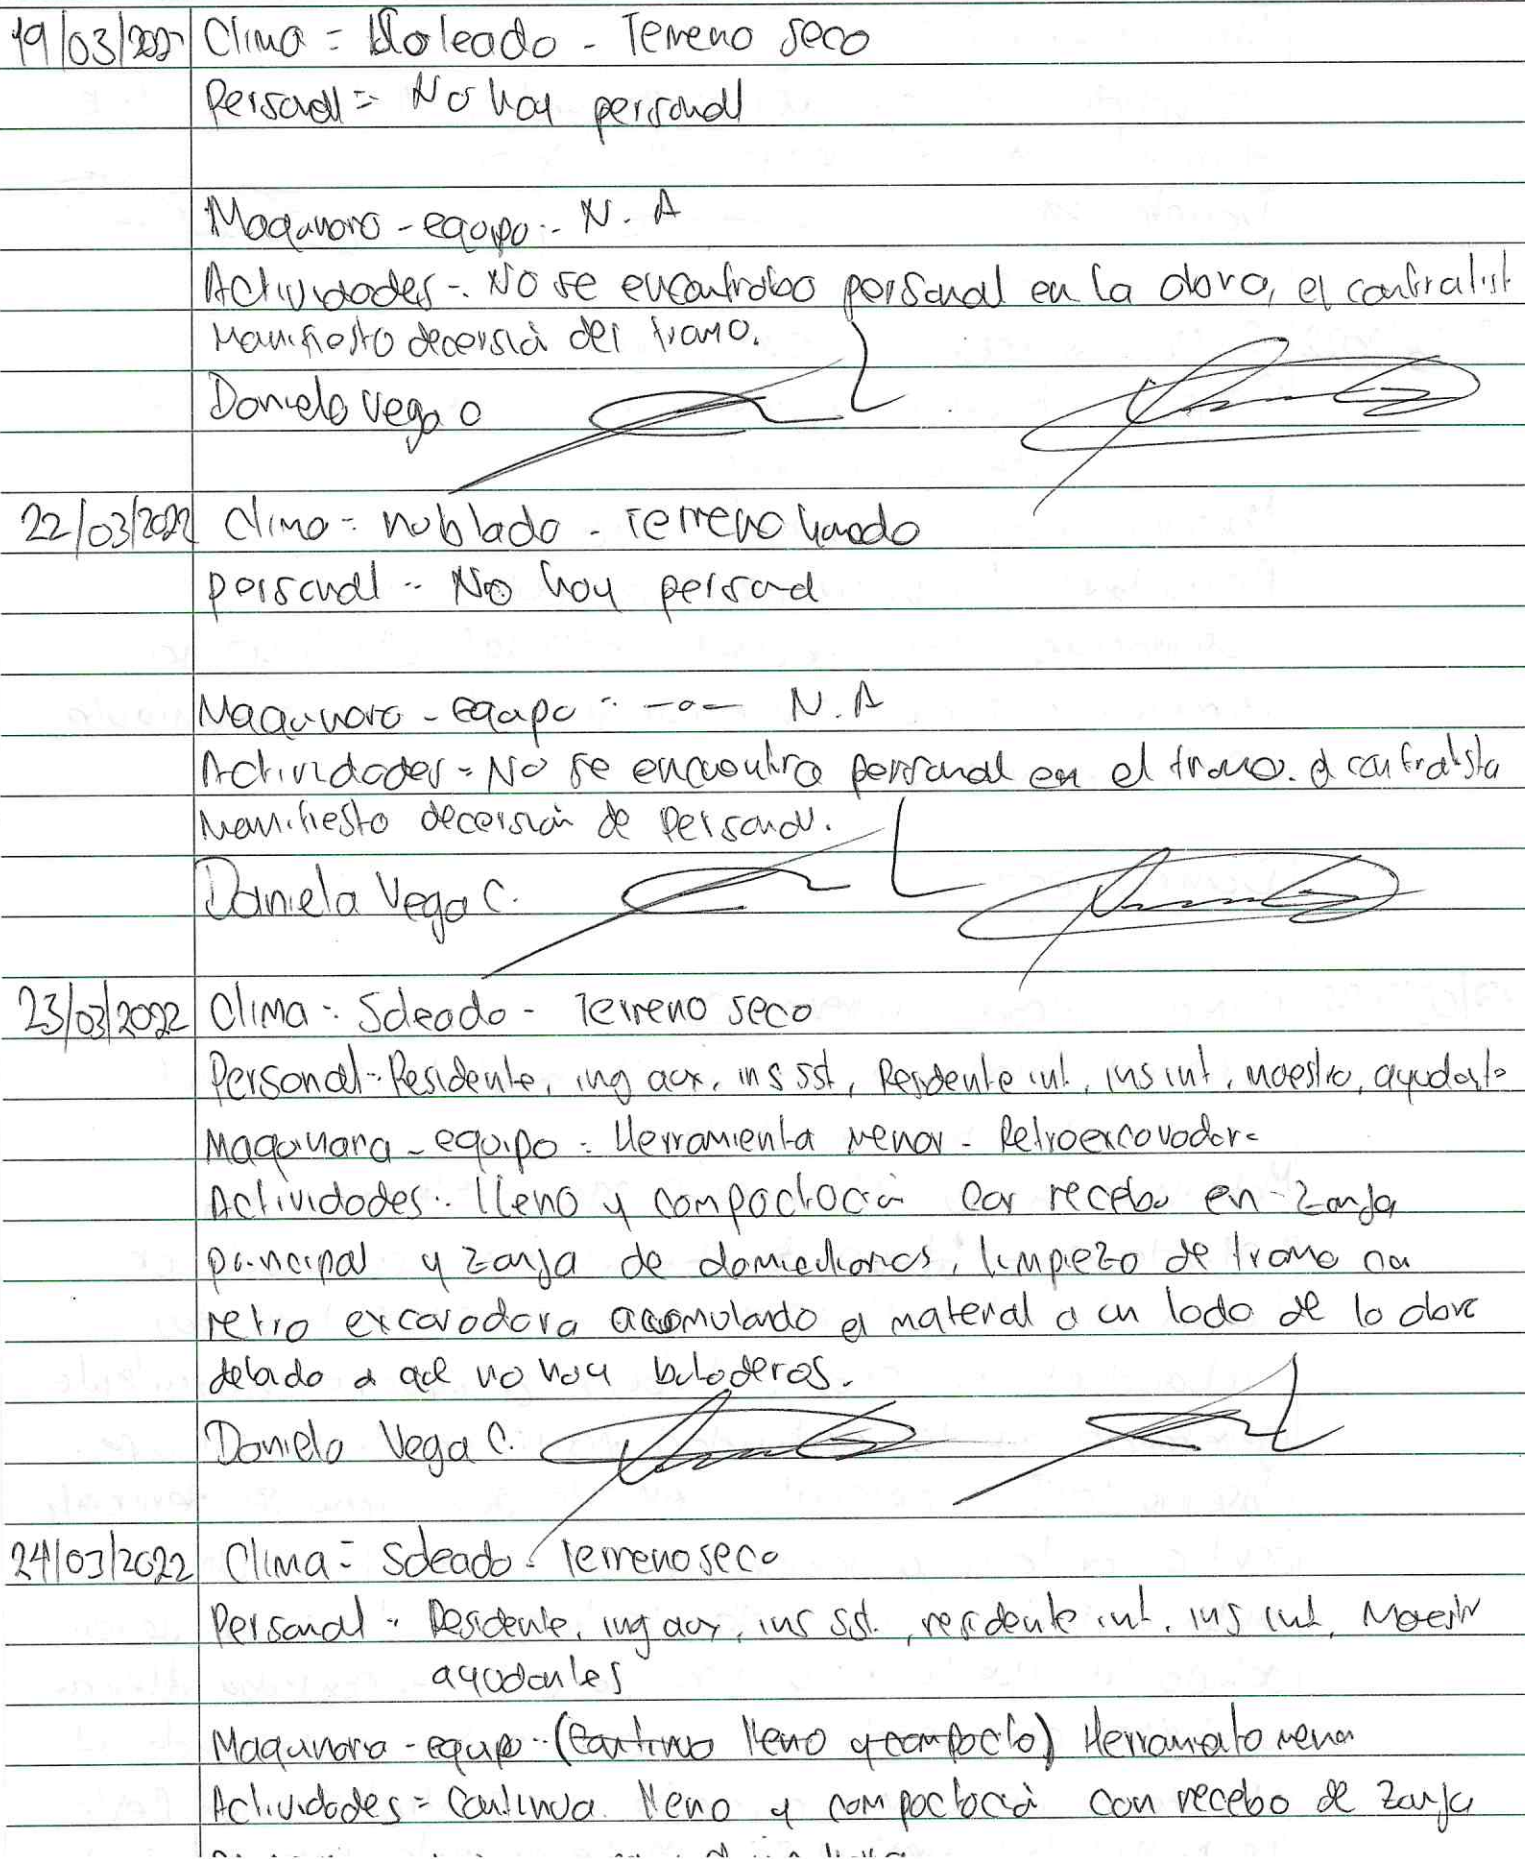 19/03/202 Clima = Soleado - Terreno seco
Personal = No hay personal
Maquinara - equipo = N. A
Actividades = No se encontraba personal en la obra, el contratist
manifiesto decersión del tramo.
Daniela Vega C
22/03/2022 Clima = Nublado - Terreno humedo
personal = No hay personal
Maquinara - equipo = -o- N.A
Actividades = No se encuentra personal en el tramo. el contratista
manifiesto decersión de personal.
Daniela Vega C.
23/03/2022 Clima = Soleado - Terreno seco
Personal = Residente, ing aux, ins sst, Residente int, ins int, maestro, ayudante
Maquinara - equipo = Herramienta menor - Retroexcavadora
Actividades = lleno y compactación con recebo en zanja
principal y zanja de domiciliarias, limpieza de tramo con
retro excavadora acomulando el material a un lado de la obra
debido a que no hay botaderos.
Daniela Vega C.
24/03/2022 Clima = Soleado - Terreno seco
Personal = Residente, ing aux, ins sst, residente int, ins int, Maestr
ayudantes
Maquinara - equipo = (Continuo lleno y compacto) Herramienta menor
Actividades = Continua lleno y compactación con recebo de zanja